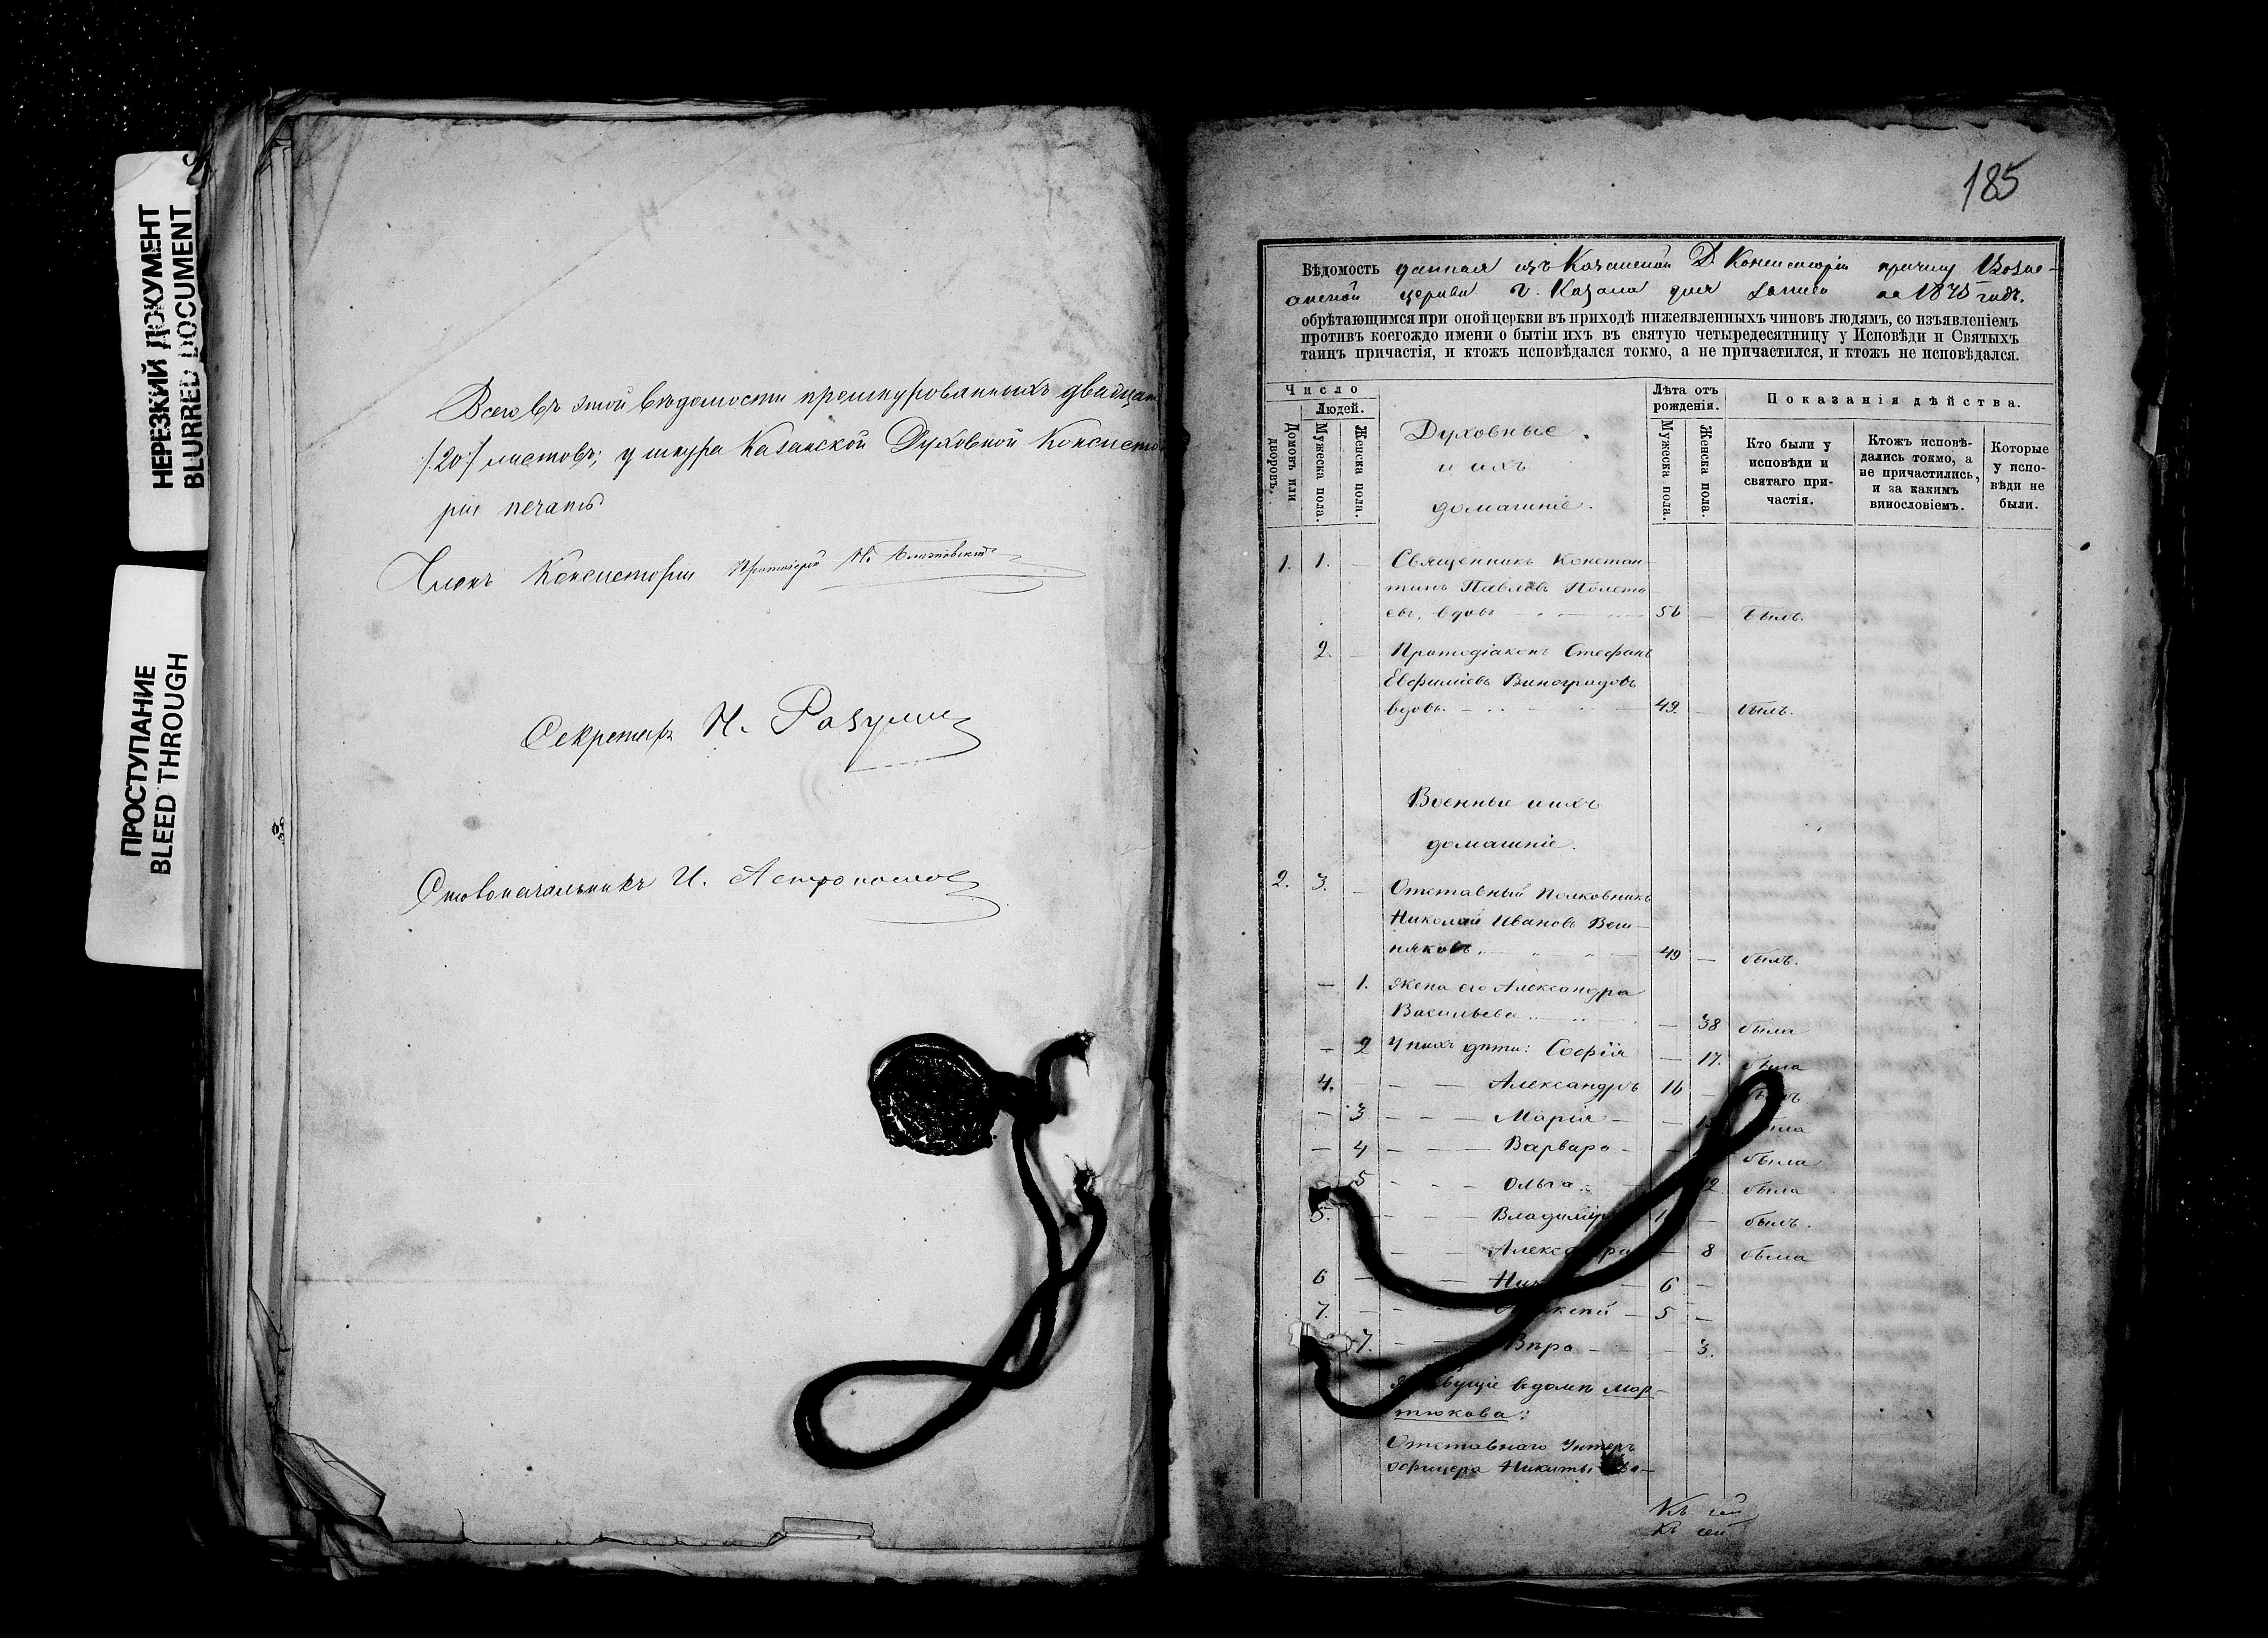 НЕРЕЗКИЙ ДОКУМЕНТ
BLURRED DOCUMENT
ПРОСТУПАНИЕ
BLEED THROUGH
Всего въ этой вѣдомости прошнурованныхъ двадцать
/20/ листовъ; у шнура Казанской Духовной Консисто
ріи печать
Членъ Консисторіи Протоіерей
Секретарь Н. Разумов
Столоначальникъ И. Астрономов
185
Вѣдомость данная изъ Казанской Д. Консисторіи причту Возне-
сенской церкви г. Казани для записи на 1875 годъ.
обрѣтающимся при оной церкви въ приходѣ нижеявленныхъ чиновъ людямъ, со изъявленіемъ
противъ коегождо имени о бытіи ихъ въ святую четыредесятницу у Исповѣди и Святыхъ
таинъ причастія, и ктожъ исповѣдался токмо, а не причастился, и ктожъ не исповѣдался.
Число
Людей.
Домовъ или дворовъ.
Мужеска пола.
Женска пола.
Духовные
и ихъ
домашніе.
Лѣта отъ рожденія.
Мужеска пола.
Женска пола.
Показанія дѣйства.
Кто были у исповѣди и святаго при-частія.
Ктожъ исповѣ-дались токмо, а не причастились, и за какимъ винословіемъ.
Которые у испо-вѣди не были.
1. 1. — Священникъ Констан-
тинъ Павловъ Полета
евъ, вдовъ 56 — былъ.
2. — Протодіаконъ Стефанъ
Евфиміевъ Виноградовъ
вдовъ 49. — былъ.
Военные и ихъ
домашніе.
2. 3. — Отставный Полковникъ
Николай Ивановъ Веш-
няковъ 49 — былъ.
— 1. Жена его Александра
Васильева — 38 была
— 2 У нихъ дѣти: Софія — 17. была
4. — — Александръ 16 — былъ
— 3 — — — Марія — была
— 4 — — — Варвара — была
5 — — — Ольга была
5. — — — Владиміръ — былъ.
— — Александра — 8 была
6 — — 6 —
7. — — — 5 —
7. — — Вѣра — — 3.
Живущіе въ домѣ Мар-
тюкова:
Отставнаго Унтеръ
офицера Никиты
Къ сей
Къ сей